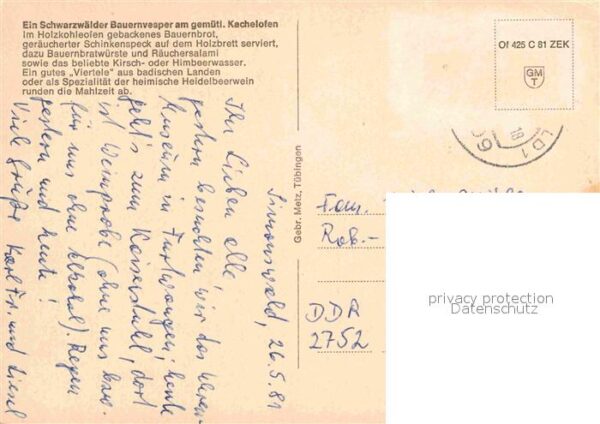 Ein Schwarzwälder Bauernvesper am gemütl. Kachelofen
Im Holzkohleofen gebackenes Bauernbrot,
geräucherter Schinkenspeck auf dem Holzbrett serviert,
dazu Bauernbratwürste und Räuchersalami
sowie das beliebte Kirsch- oder Himbeerwasser.
Ein gutes „Viertele" aus badischen Landen
oder als Spezialität der heimische Heidelbeerwein
runden die Mahlzeit ab.
Of 425 C 81 ZEK
GM
T
Gebr. Metz, Tübingen
Simonswald, 26.5.81
Ihr Lieben alle,
gestern besuchten wir das Uhren-
museum in Furtwangen, heute
geht's zum Kaiserstuhl, dort
ist Weinprobe (ohne uns bzw.
für uns ohne Alkohol). Regen
gestern und heute!
Viel Grüße Karl Fr. und Liesel
Fam.
Rob.-
DDR
2752
privacy protection
Datenschutz